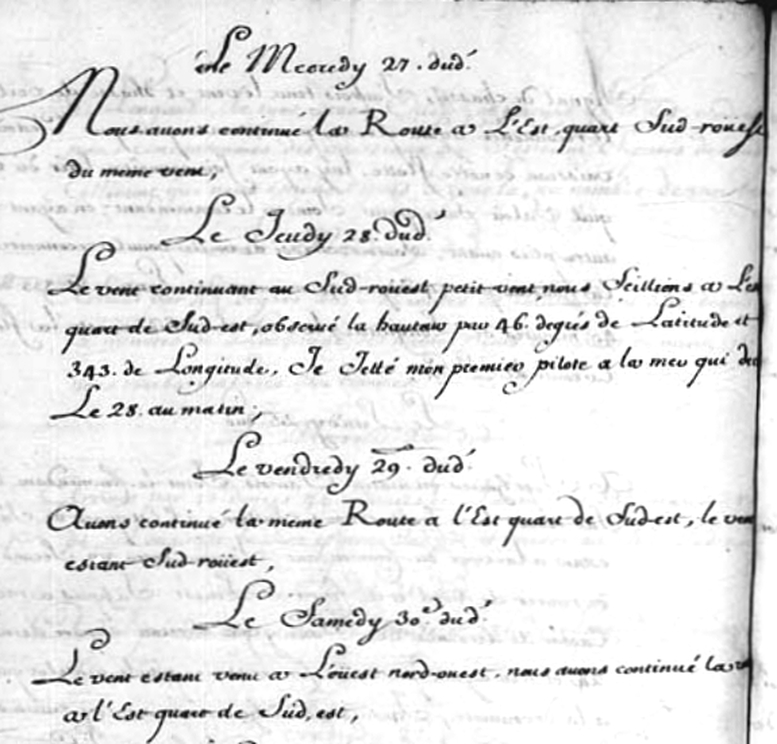 Le Mecredy 27. dud.
Nous auons continué la Route a L'Est quart Sud-rouest
du meme vent,
Le Jeudy 28. dud.
Le vent continuant au Sud-roüest petit vent, nous Seillions a L'es
quart de Sud-est, obserué la hauteur par 46. degrés de Latitude et
343. de Longitude, Je Jetté mon premier pilote a la mer qui
Le 28. au matin,
Le vendredy 29. dud.
Auons continué la meme Route a l'Est quart de Sud-est, le ven
estant Sud-roüest,
Le Samedy 30e. dud.
Le vent estant venu a L'oüest nord-ouest, nous auons continué la
a l'Est quart de Sud, est,